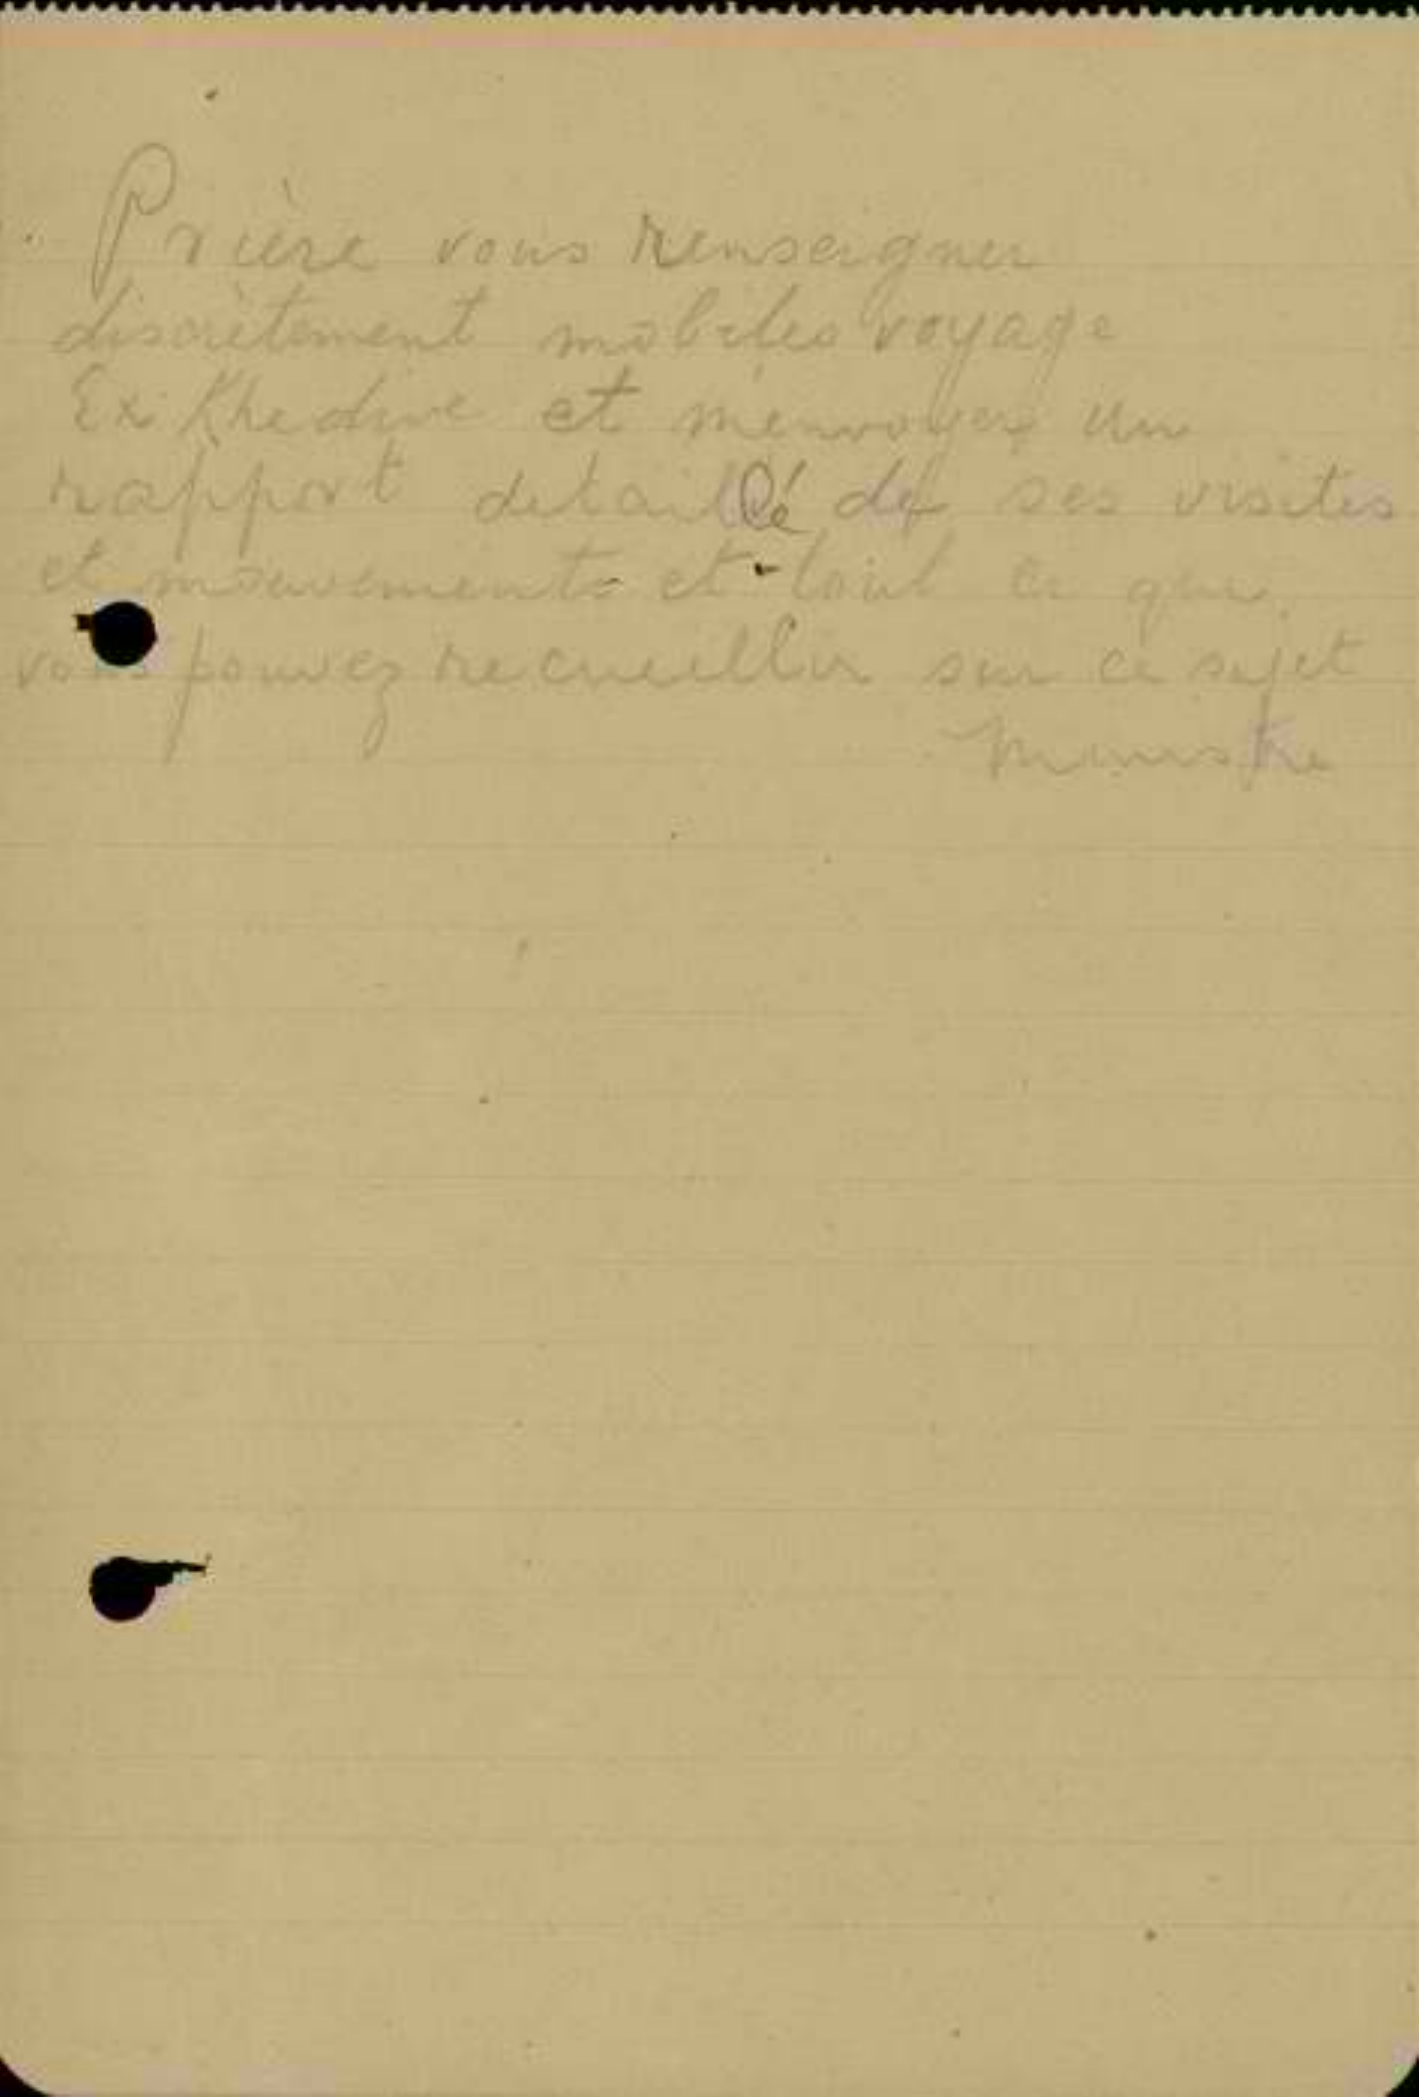 Prière vous renseigner
discrètement mobiles voyage
Ex Khedive et m'envoyer un
rapport detaillé de ses visites
et mouvements et tout ce que
vous pouvez recueillir sur ce sujet
Ministre